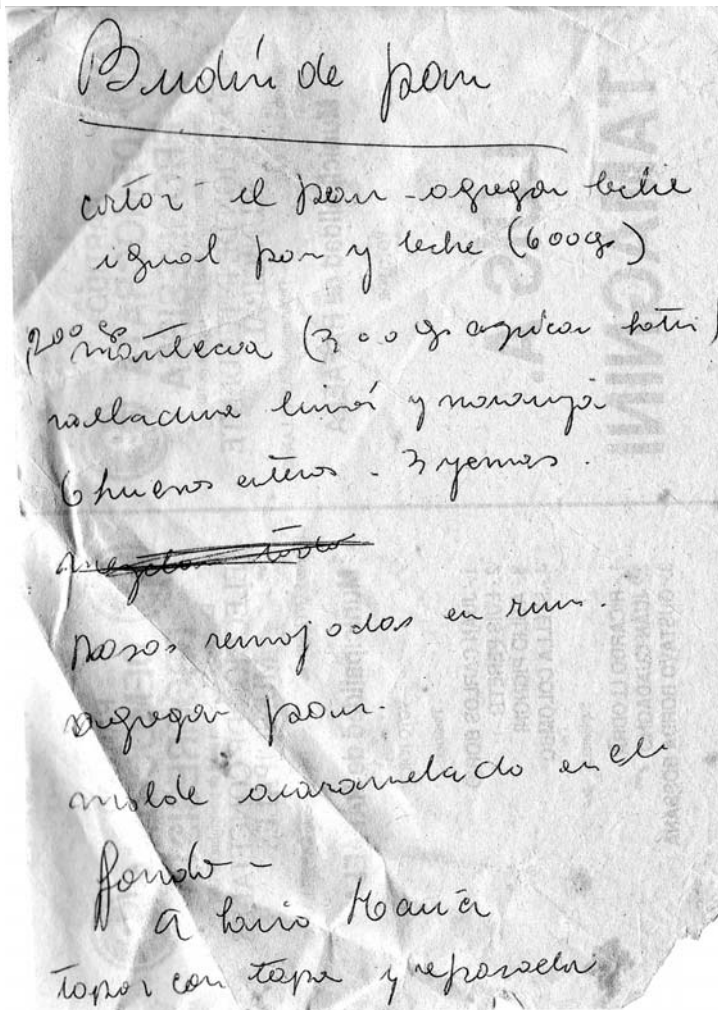 Budín de pan
cortar - el pan - agregar leche
igual pan y leche (600gs)
200 gs manteca (300 gs azúcar batir)
ralladura limón y naranja
6 huevos enteros - 3 yemas.
mezclar todo
Pasas remojadas en rum.
agregar pan.
molde acaramelado en el
fondo -
a baño María
tapar con tapa y repasador